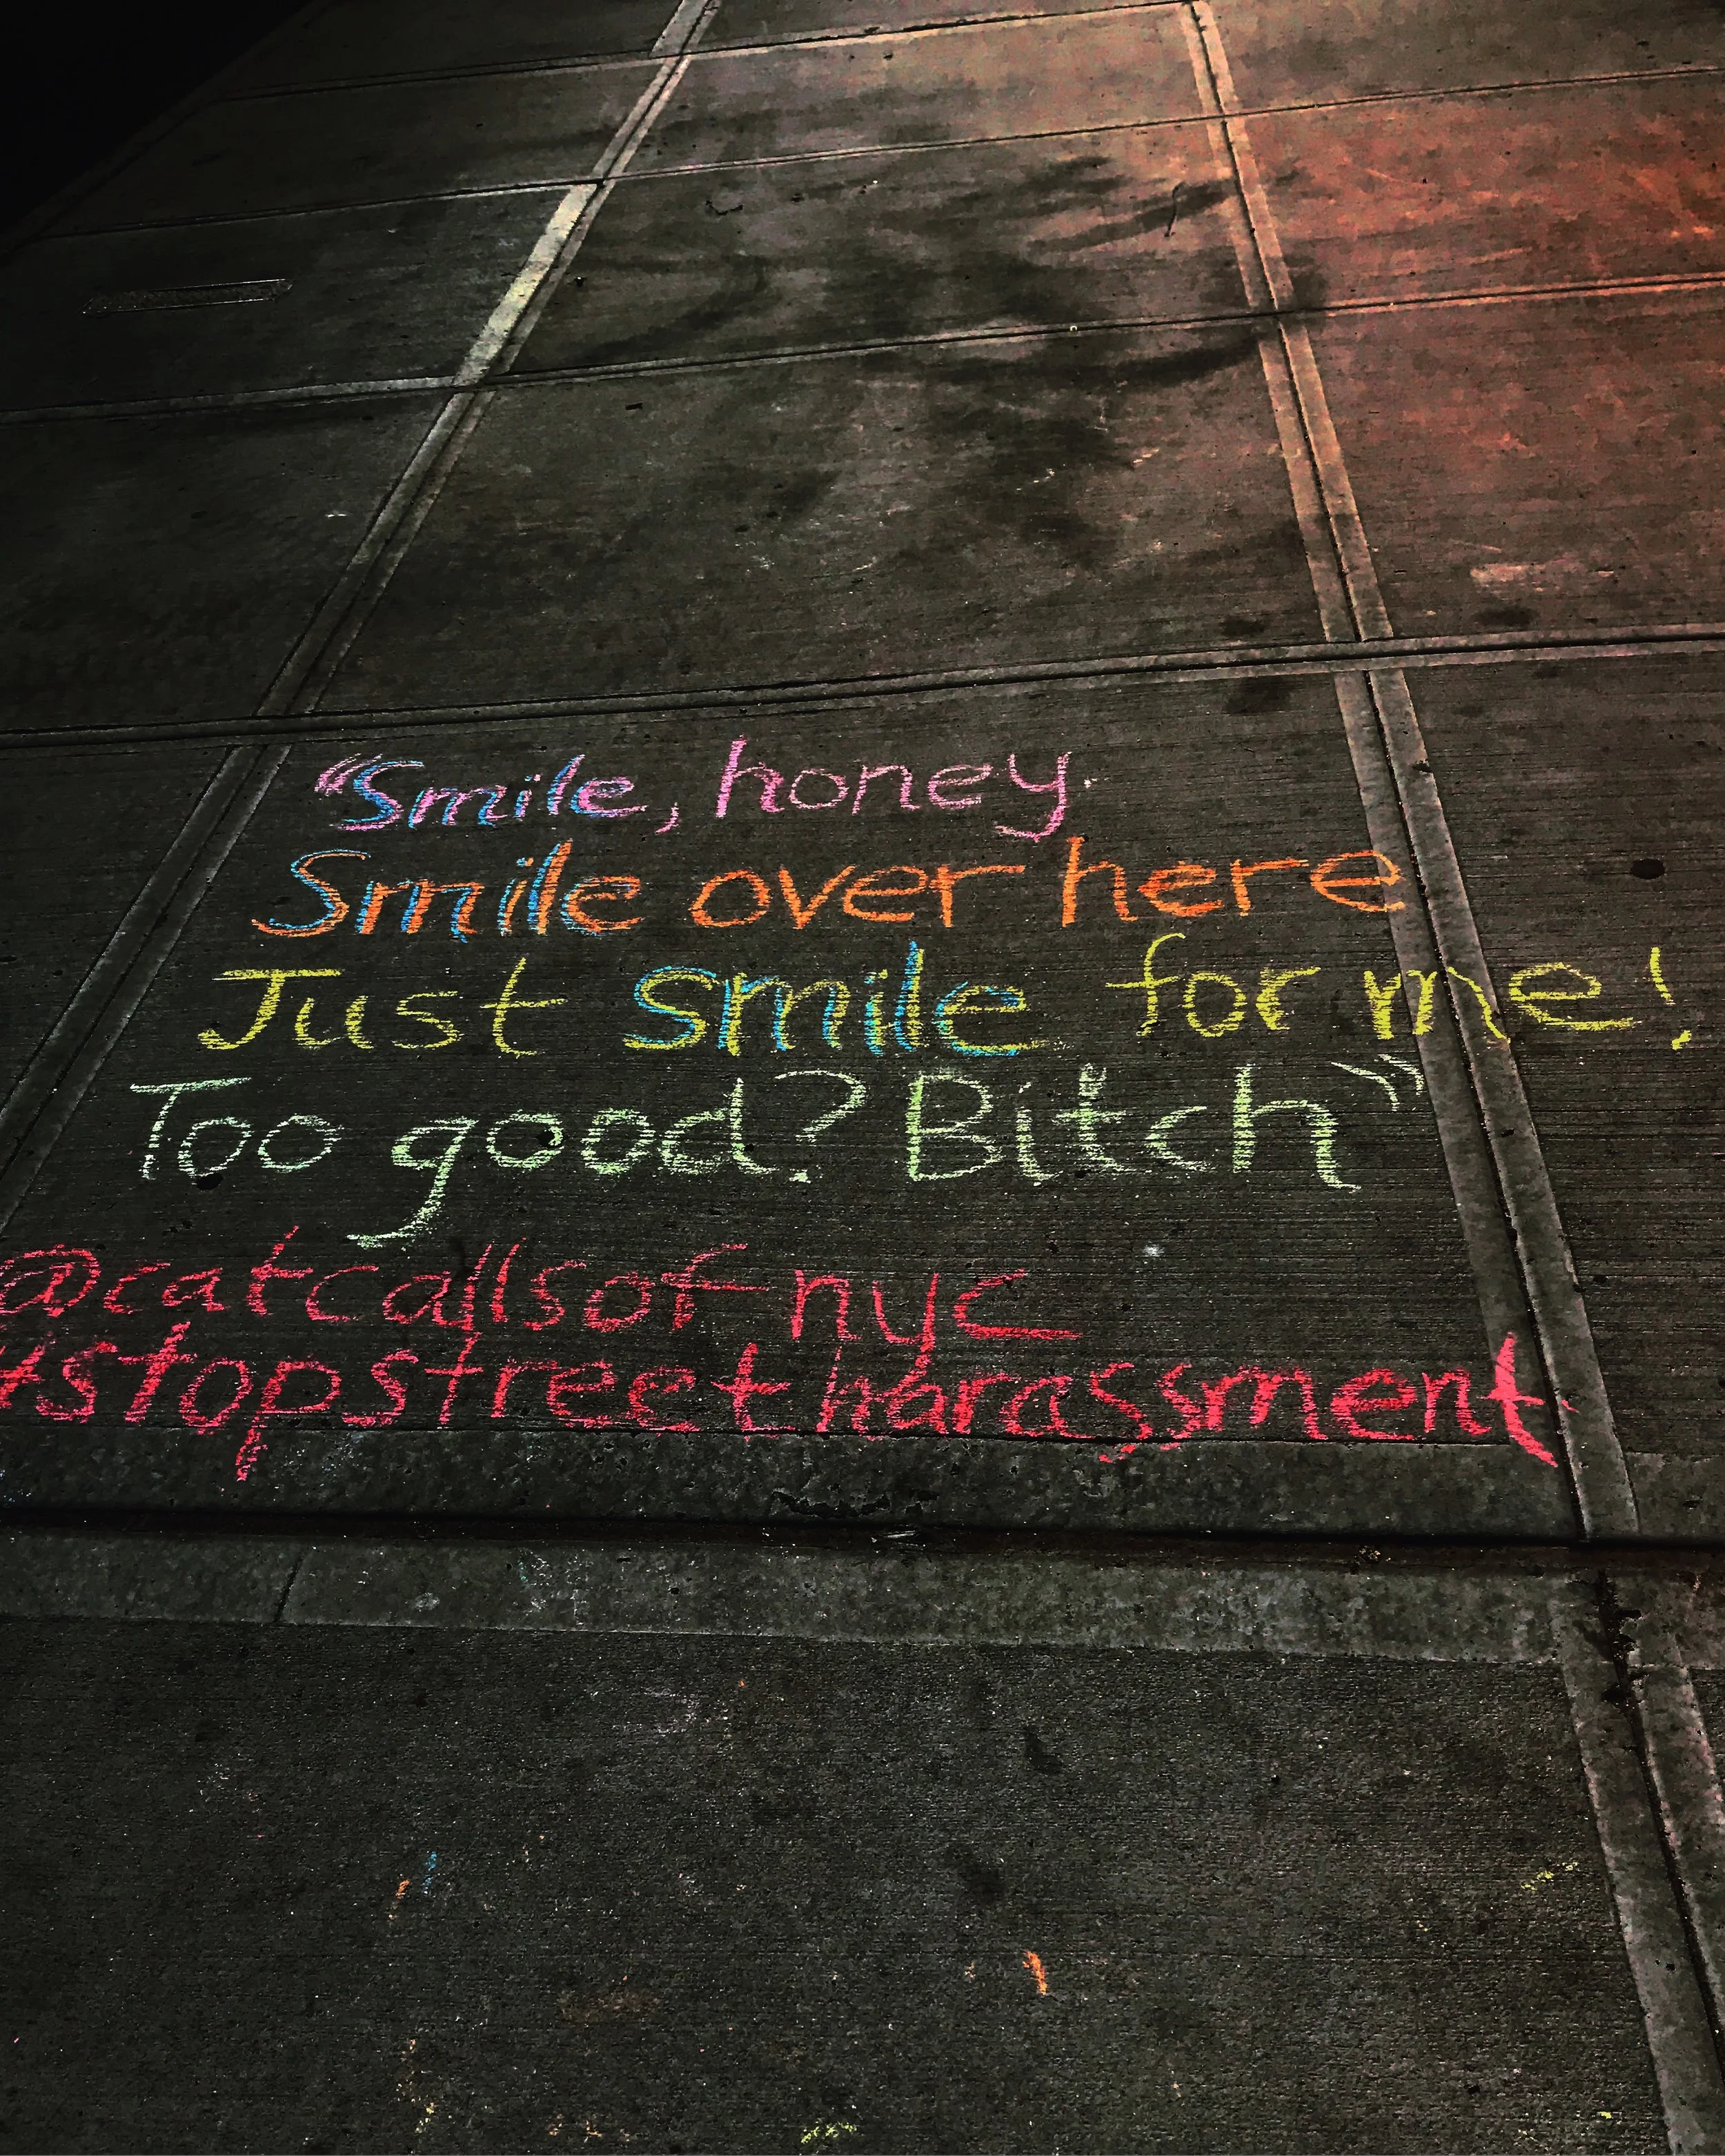 "Smile, honey.
Smile over here
Just smile for me!
Too good? Bitch"
@catcallsofnyc
#stopstreetharassment